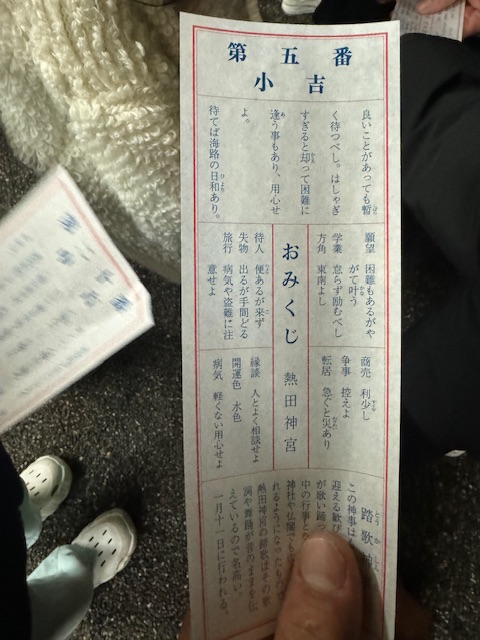 第五番
小吉
良いことがあっても暫
く待つべし。はしゃぎ
すぎると却って困難に
逢う事もあり、用心せ
よ。
待てば海路の日和あり。
願望 困難もあるがや
がて叶う
学業 怠らず励むべし
方角 東南よし
おみくじ 熱田神宮
待人 便あるが来ず
失物 出るが手間どる
旅行 病気や盗難に注
意せよ
商売 利少し
争事 控えよ
転居 急ぐと災あり
縁談 人とよく相談せよ
開運色 水色
病気 軽くない用心せよ
踏歌
この神事は
迎える歓び
が歌い踊
中の行事と
神社や仏閣でも
れるようになったもの
熱田神宮の踏歌はその歌
詞や舞踊が昔のままを伝
えているので名高い。
一月十一日に行われる。